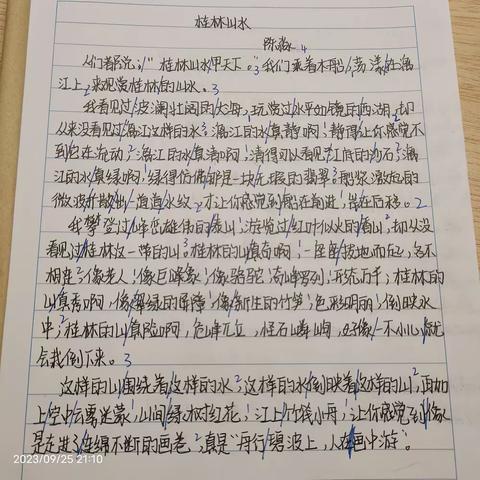 桂林山水
陈淼 4
人们都说:“桂林山水甲天下。”3我们乘着木船,荡漾在漓
江上,2来观赏桂林的山水。3
我看见过波澜壮阔的大海,玩赏过水平如镜的西湖,却
从来没看见过漓江这样的水。3漓江的水真静啊,静得让你感觉不
到它在流动;2漓江的水真清啊,清得可以看见江底的沙石;3漓
江的水真绿啊,绿得仿佛那是一块无瑕的翡翠。3船桨激起的
微波扩散出一道道水纹,2才让你感觉到船在前进,岸在后移。2
我攀登过峰峦雄伟的泰山,游览过红叶似火的香山,却从没
看见过桂林这一带的山。3桂林的山真奇啊,一座座拔地而起,各不
相连,2像老人,像巨象,像骆驼,奇峰罗列,形态万千;桂林的
山真秀啊,像翠绿的屏障,像新生的竹笋,色彩明丽,倒映水
中;2桂林的山真险啊,危峰兀立,怪石嶙峋,好像一不小心就
会栽倒下来。3
这样的山围绕着这样的水,2这样的水倒映着这样的山,2再加
上空中云雾迷蒙,山间绿树红花,江上竹筏小舟,让你感觉到像
是走进了连绵不断的画卷,2真是“舟行碧波上,人在画中游”。
2023/09/25 21:10